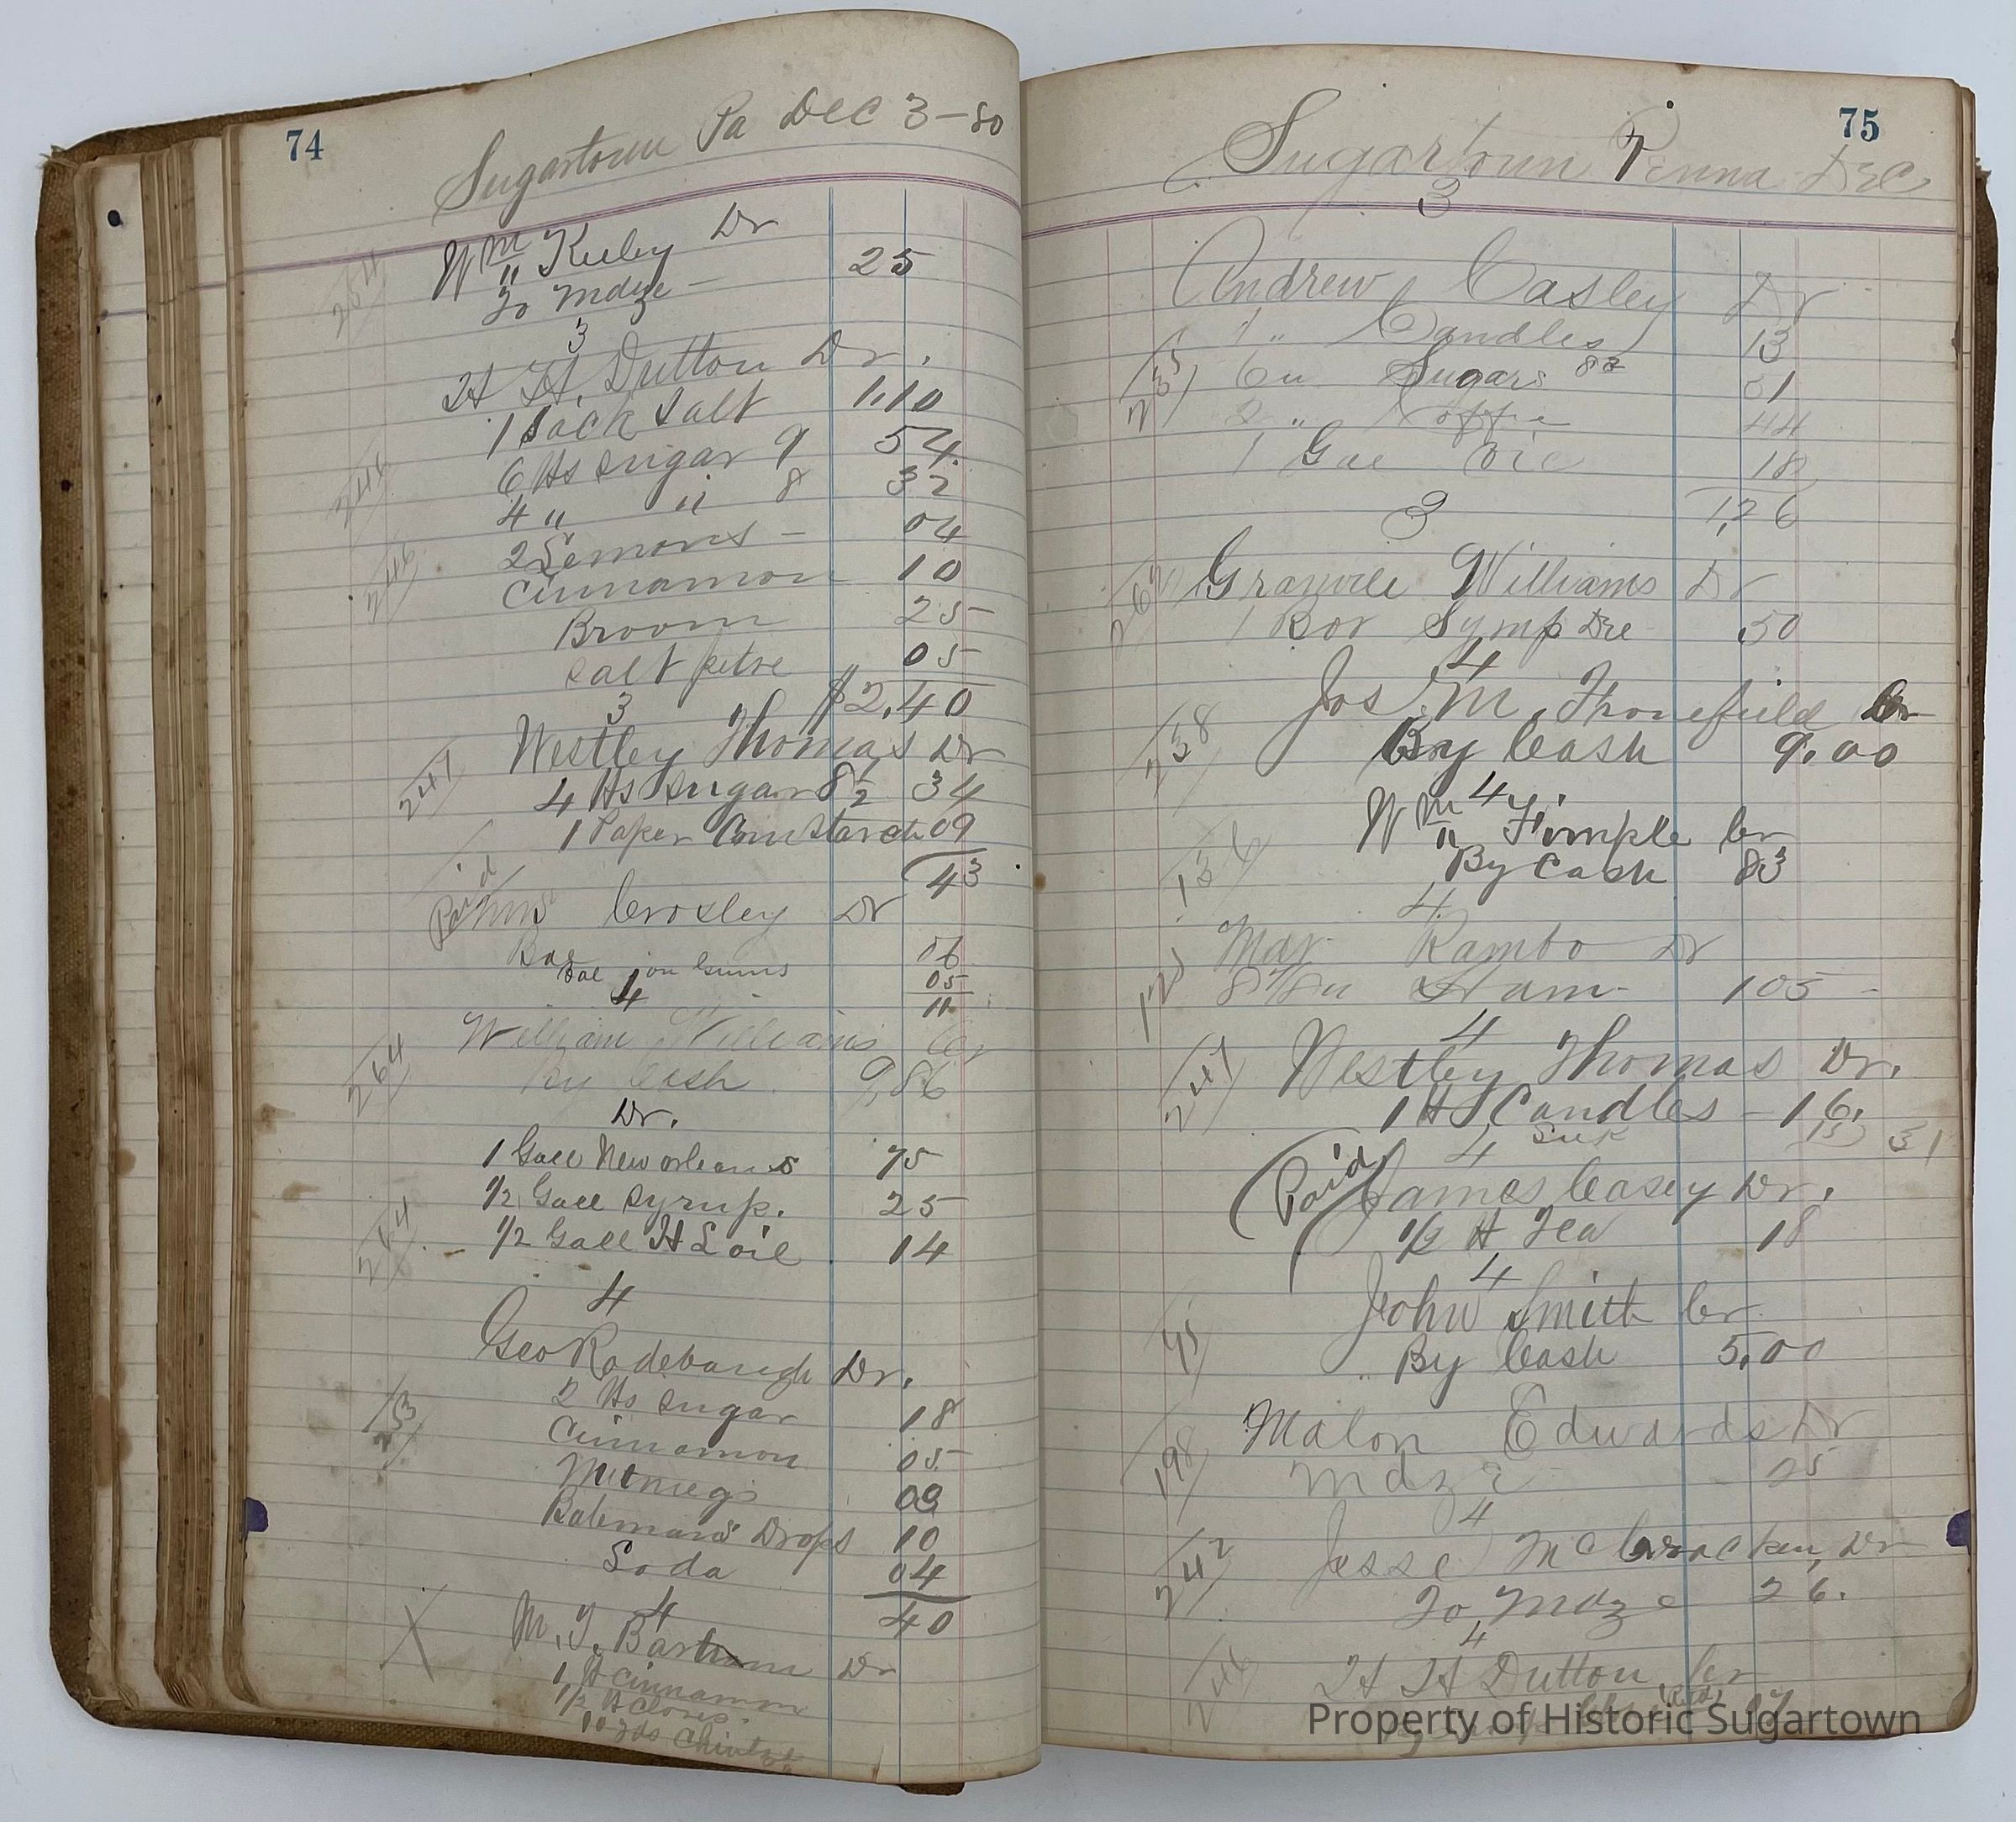 74
Sugartown Pa Dec 3-80
254
Wm Kuley Dr
To Mdze - 25
3
H H. Dutton Dr.
1 Sack Salt 1.10
244
6 lbs sugar 9 54
4 " " 8 32
2 Lemons - 04
246
Cinnamon 10
Broom 25
Salt petre 05
$2.40
3
Westley Thomas Dr
247
4 lbs sugar 8½ 34
1 Paper Cornstarch 09
43
Paid
Crosley Dr
06
05
11
4
William Williams Cr
264
By Cash 9,86
Dr.
1 Gall New orleans 75
½ Gall Syrup. 25
264
½ Gall H L oil 14
4
Geo Rodebaugh Dr.
2 lbs sugar 18
253
Cinnamon 05
Nutmegs 03
Batemans Drops 10
Soda 04
40
4
M. J. Bartram Dr
X
1 lb Cinnamon
½ lb Cloves
10 yds
75
Sugartown Penna Dec
3
Andrew Casley Dr
1 " Candles 13
235
6 " Sugars 8½ 51
2 " Coffie 44
1 Gal Oil 18
1,26
3
262
Granville Williams Dr
1 Box Symp Dre 50
4
Jos. M. Thonefield Cr
238
By Cash 9.00
4
Wm Fimple Cr
136
By Cash 83
4
Mar Rambo Dr
125
Ham - 105 -
4
247
Westley Thomas Dr.
1 lb Candles - 16.
4
15 31
Paid
James Casey Dr.
½ lb Tea 18
4
John Smith Cr.
45
By Cash 5.00
Malon Edwards Dr
198
Mdze 25
4
242
Jesse McCracken, Dr
To Mdze 26.
4
246
H H Dutton Cr
Property of Historic Sugartown